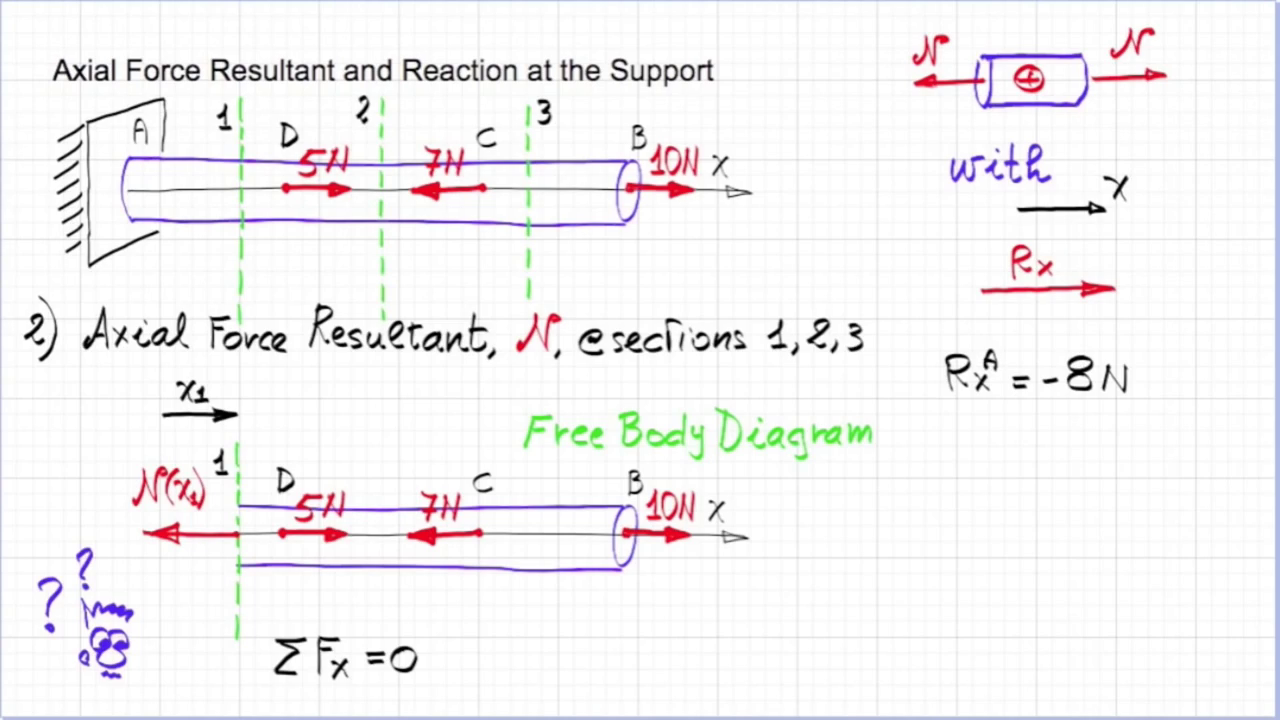 Axial Force Resultant and Reaction at the Support
N + N
A 1 D 5N 2 7N C 3 B 10N X
with
x
Rx
2) Axial Force Resultant, N, @sections 1,2,3
RxA = -8N
x1
Free Body Diagram
N(x1) 1 D 5N 7N C B 10N X
? ?
ΣFx =0